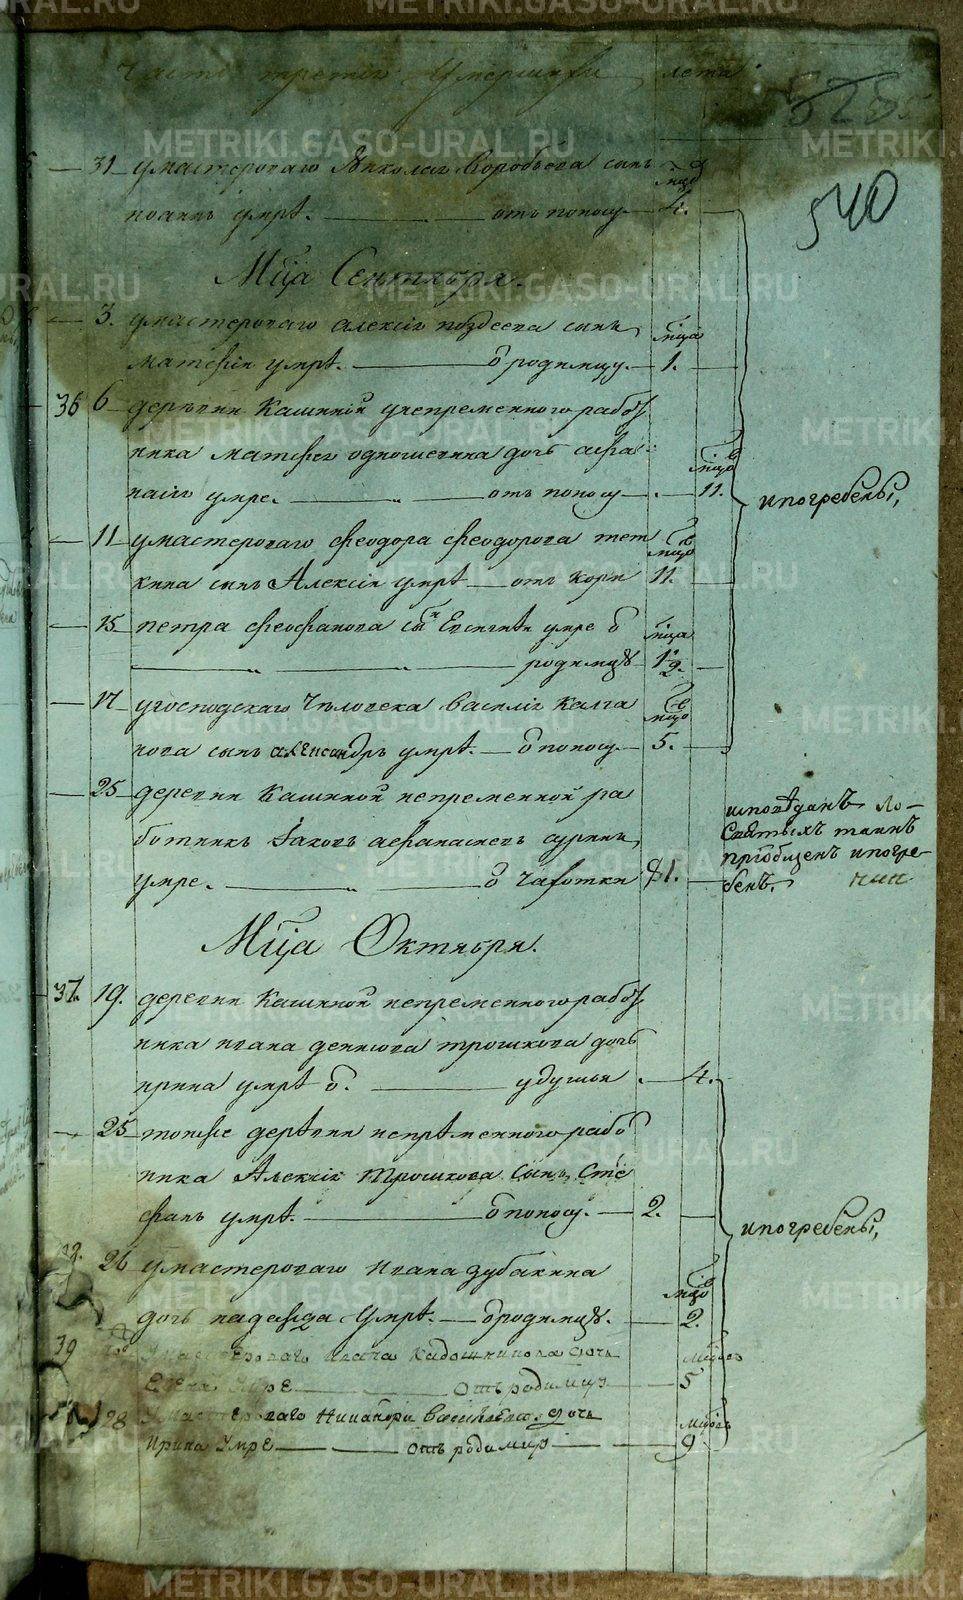 Часть третія Умершихъ лета
525
540
31 умастероваго Николая Воробьева сынъ
иоаннъ умрѣ. отъ поносу 4.
Мца Сентября.
3. умастероваго алексѣя поздеева сынъ
матфей умрѣ. ѿ родимцу. мца 1.
36 6 деревни Кашиной унепременного рабо
ника матфея одношевина дочь афа
насія умре. отъ поносу мцо 11.
11 умастероваго феодора феодорова тет
кина сынъ Алексѣй умрѣ отъ кори мцо 11.
15 петра феофанова сынъ Евгений умре ѿ
родимцу мца 1½.
17 угосподскаго человека василія Калга
нова сынъ александръ умрѣ. ѿ поносу мцо 5.
ипогребены,
25 деревни Кашиной непременной ра
ботникъ Іаковъ афанасиевъ суринъ
умре. ѿ чахотки 81.
исповѣданъ
Святыхъ таинъ
пріобщенъ ипогре
бенъ.
Мца Октября.
37. 19. деревни Кашиной непременного рабо
ника ивана денисова трошкова дочь
ирина умрѣ ѿ. удушья 4.
25 тоежъ деревни непременного рабо
ника Алексѣя Трошкова Сынъ Сте
фанъ умрѣ. ѿ поносу. 2.
26 умастероваго ивана зубакина
дочь надежда умрѣ. ѿ родимцу. мцо 2.
39 Умастероваго Кадошникова дочь
Умре отъ родимцу 5
28 Умастероваго Никанора васильева дочь
Ирина Умре отъ родимцу 9
ипогребены,
METRIKI.GASO-URAL.RU